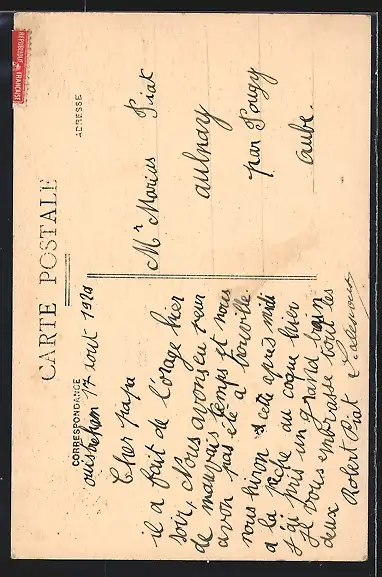 CARTE POSTALE
CORRESPONDANCE
ADRESSE
RÉPUBLIQUE FRANÇAISE
17 aout 1929
Cher papa
il a fait de l'orage hier
soir, Nous avons eu
de mauvais temps et nous
avon pas été a trouville.
nous hiron cete apres midi
a la pèche au coque hier
j ai pris un grand bain
je vous embrasse tout les
deux Robert Piat
Mr Marius Piat
aulnay
par Pougy
aube.